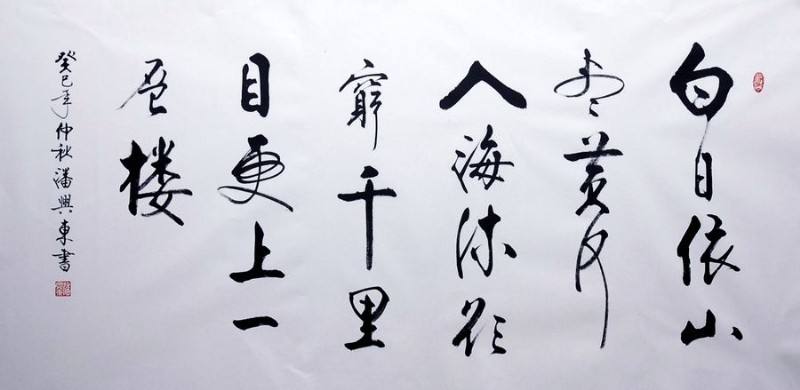 白日依山
尽黄河
入海流欲
穷千里
目更上一
层楼
癸巳年仲秋潘興東書